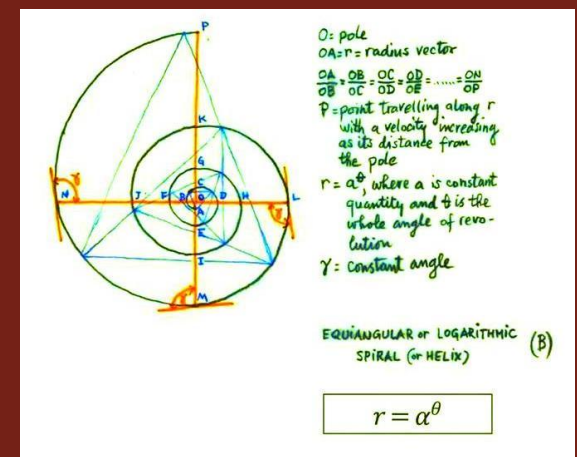 P
K
G
C
N
J
F
B
O
D
H
L
A
E
I
M
γ
γ
γ
O = pole
OA = r = radius vector
OA/OB = OB/OC = OC/OD = OD/OE = ...... = ON/OP
P = point travelling along r
with a velocity increasing
as its distance from
the pole
r = a^θ, where a is constant
quantity and θ is the
whole angle of revo-
lution
γ = constant angle
EQUIANGULAR or LOGARITHMIC
SPIRAL (or HELIX)
(B)
r = α^θ